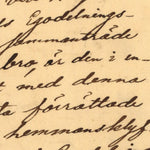 Egodelnings-
sammanträde
bro, är den i en-
t med denna
ta förrättade
hemmansklyf